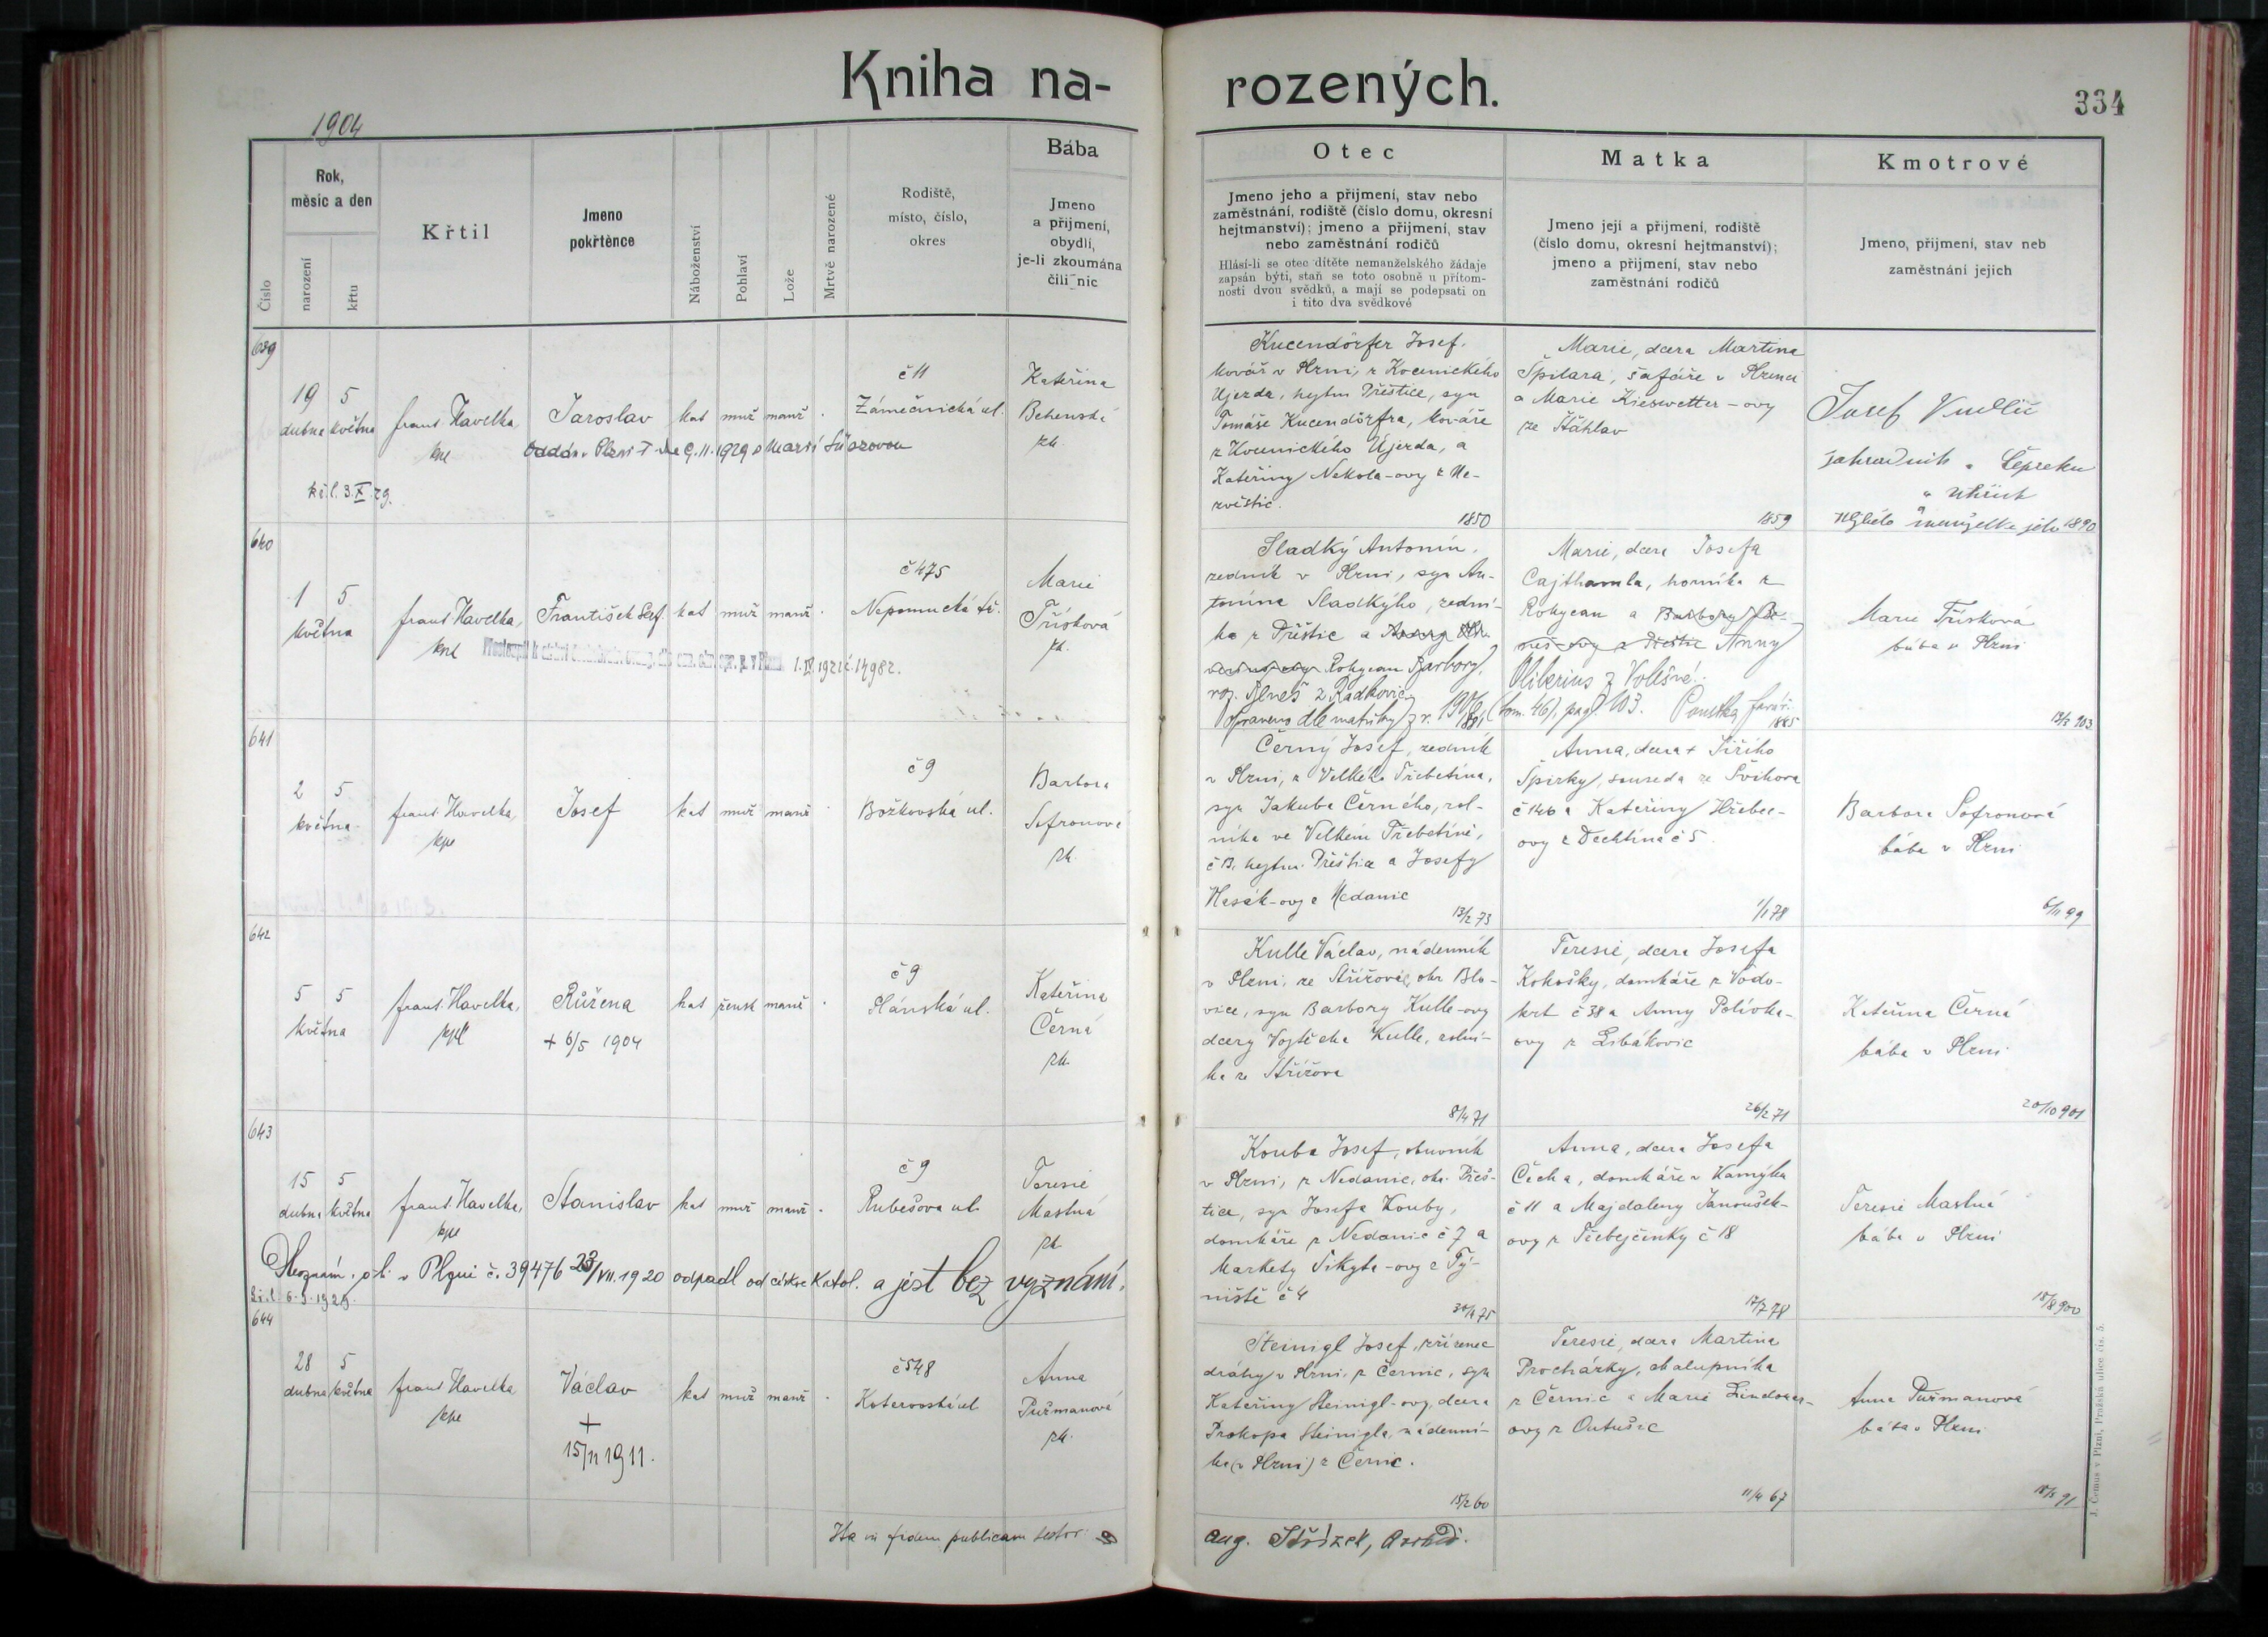 Kniha na-
rozených.
334
1904
Číslo
Rok,
měsíc a den
narození
křtu
Křtil
Jmeno
pokřtěnce
Náboženství
Pohlaví
Lože
Mrtvě narozené
Rodiště,
místo, číslo,
okres
Bába
Jmeno
a přijmení,
obydlí,
je-li zkoumána
čili nic
Otec
Jmeno jeho a přijmení, stav nebo
zaměstnání, rodiště (číslo domu, okresní
hejtmanství); jmeno a přijmení, stav
nebo zaměstnání rodičů
Hlásí-li se otec dítěte nemanželského žádaje
zapsán býti, staň se toto osobně u přítom-
nosti dvou svědků, a mají se podepsati on
i tito dva svědkové
Matka
Jmeno její a přijmení, rodiště
(číslo domu, okresní hejtmanství);
jmeno a přijmení, stav nebo
zaměstnání rodičů
Kmotrové
Jmeno, přijmení, stav neb
zaměstnání jejich
639
19 5
dubna května
frant. Havelka,
Jaroslav
kat muž manž
č 11
Zámečnická ul.
Kateřina
Oddán v Plzni dne 9.11.1929 s Marií
Kucendörfer Josef,
kovář v Plzni, z Kocenického
Újezda, hejtm Přeštice, syn
Tomáše Kucendörfra, kováře
z Kocenického Újezda, a
Kateřiny Nekola-ovy z Ne-
zvěstic.
1850
Marie, dcera Martina
Špilara, šafáře v Plzenci
a Marie Kieswetter-ovy
ze Šťáhlav
1859
Josef
zahradník
manželka jeho 1890
640
1 5
května
frant. Havelka,
František Ser.
kat muž manž
č 475
Nepomucká tř.
Marie
Třísková
zk.
1. IV. 1921 č. 14982.
Sladký Antonín,
zedník v Plzni, syn An-
tonína Sladkýho, zední-
ka z Přeštic a
Rokycan Barbory,
roz. Beneš z Radkovic
Opraveno dle matriky z r. 1906 (tom. 46), pag. 103. Pouska farář.
Marie, dcera Josefa
Cajthamla, horníka z
Rokycan a Barbory Be-
neš-ovy z Přeštic Anny
Oliberius z Volešné.
1885
Marie Třísková
bába v Plzni
641
2 5
května
frant. Havelka,
kpl
Josef
kat muž manž
č 9
Božkovská ul.
Barbora
Sofronova
zk.
Černý Josef, zedník
v Plzni, z Velkého Třebetína,
syn Jakuba Černého, rol-
níka ve Velkém Třebetíně,
č 13, hejtm. Přeštice a Josefy
Hasák-ovy z Nedanic
13/2 73
Anna, dcera + Jiřího
Špirky, souseda ze Švihova
č 146 a Kateřiny Hřebec-
ovy z Dechtína č 5.
1/1 78
Barbora Sofronová
bába v Plzni
6/11 99
642
5 5
května
frant. Havelka,
kpl
Růžena
+ 6/5 1904
kat žensk manž
č 9
Plánská ul.
Kateřina
Černá
zk.
Kulle Václav, nádenník
v Plzni, ze Střížova, okr. Blo-
vice, syn Barbory Kulle-ovy
dcery Vojtěcha Kulle, rolní-
ka ze Střížova
8/4 71
Teresie, dcera Josefa
Kohoušky, domkáře z Vodo-
krt č 38 a Anny Polívka-
ovy z Libákovic
26/2 71
Kateřina Černá
bába v Plzni
20/10 901
643
15 5
dubna května
frant. Havelka,
kpl
Stanislav
kat muž manž
č 9
Rubešova ul.
Teresie
Mastná
zk.
Oznám. o. h. v Plzni č. 39476 23/VII. 1920 odpadl od církve katol. a jest bez vyznání.
Kř. l. 6. 3. 1929.
Kouba Josef, obuvník
v Plzni, z Nedanic, okr. Přeš-
tice, syn Josefa Kouby,
domkáře z Nedanic č 7 a
Markety Sikyta-ovy z Tý-
niště č 4
30/4 75
Anna, dcera Josefa
Čecha, domkáře v Kamýku
č 11 a Majdaleny Janoušek-
ovy z Třebejčinky č 18
17/7 78
Teresie Mastná
bába v Plzni
18/8 900
644
28 5
dubna května
frant. Havelka,
kpl
Václav
+
15/11 1911.
kat muž manž
č 548
Koterovská ul
Anna
Puřmanová
zk.
Steinigl Josef, zřízenec
dráhy v Plzni, z Černic, syn
Kateřiny Steinigl-ovy, dcera
Prokopa Steinigla, nádenní-
ka (v Plzni) z Černic.
15/2 60
Teresie, dcera Martina
Procházky, chalupníka
z Černic a Marie
ovy z Outušic
11/4 67
Anna Puřmanová
bába v Plzni
Ita in fidem publicam testor:
Aug. Střízek, Archid.
J. Černus v Plzni, Pražská ulice čís. 5.